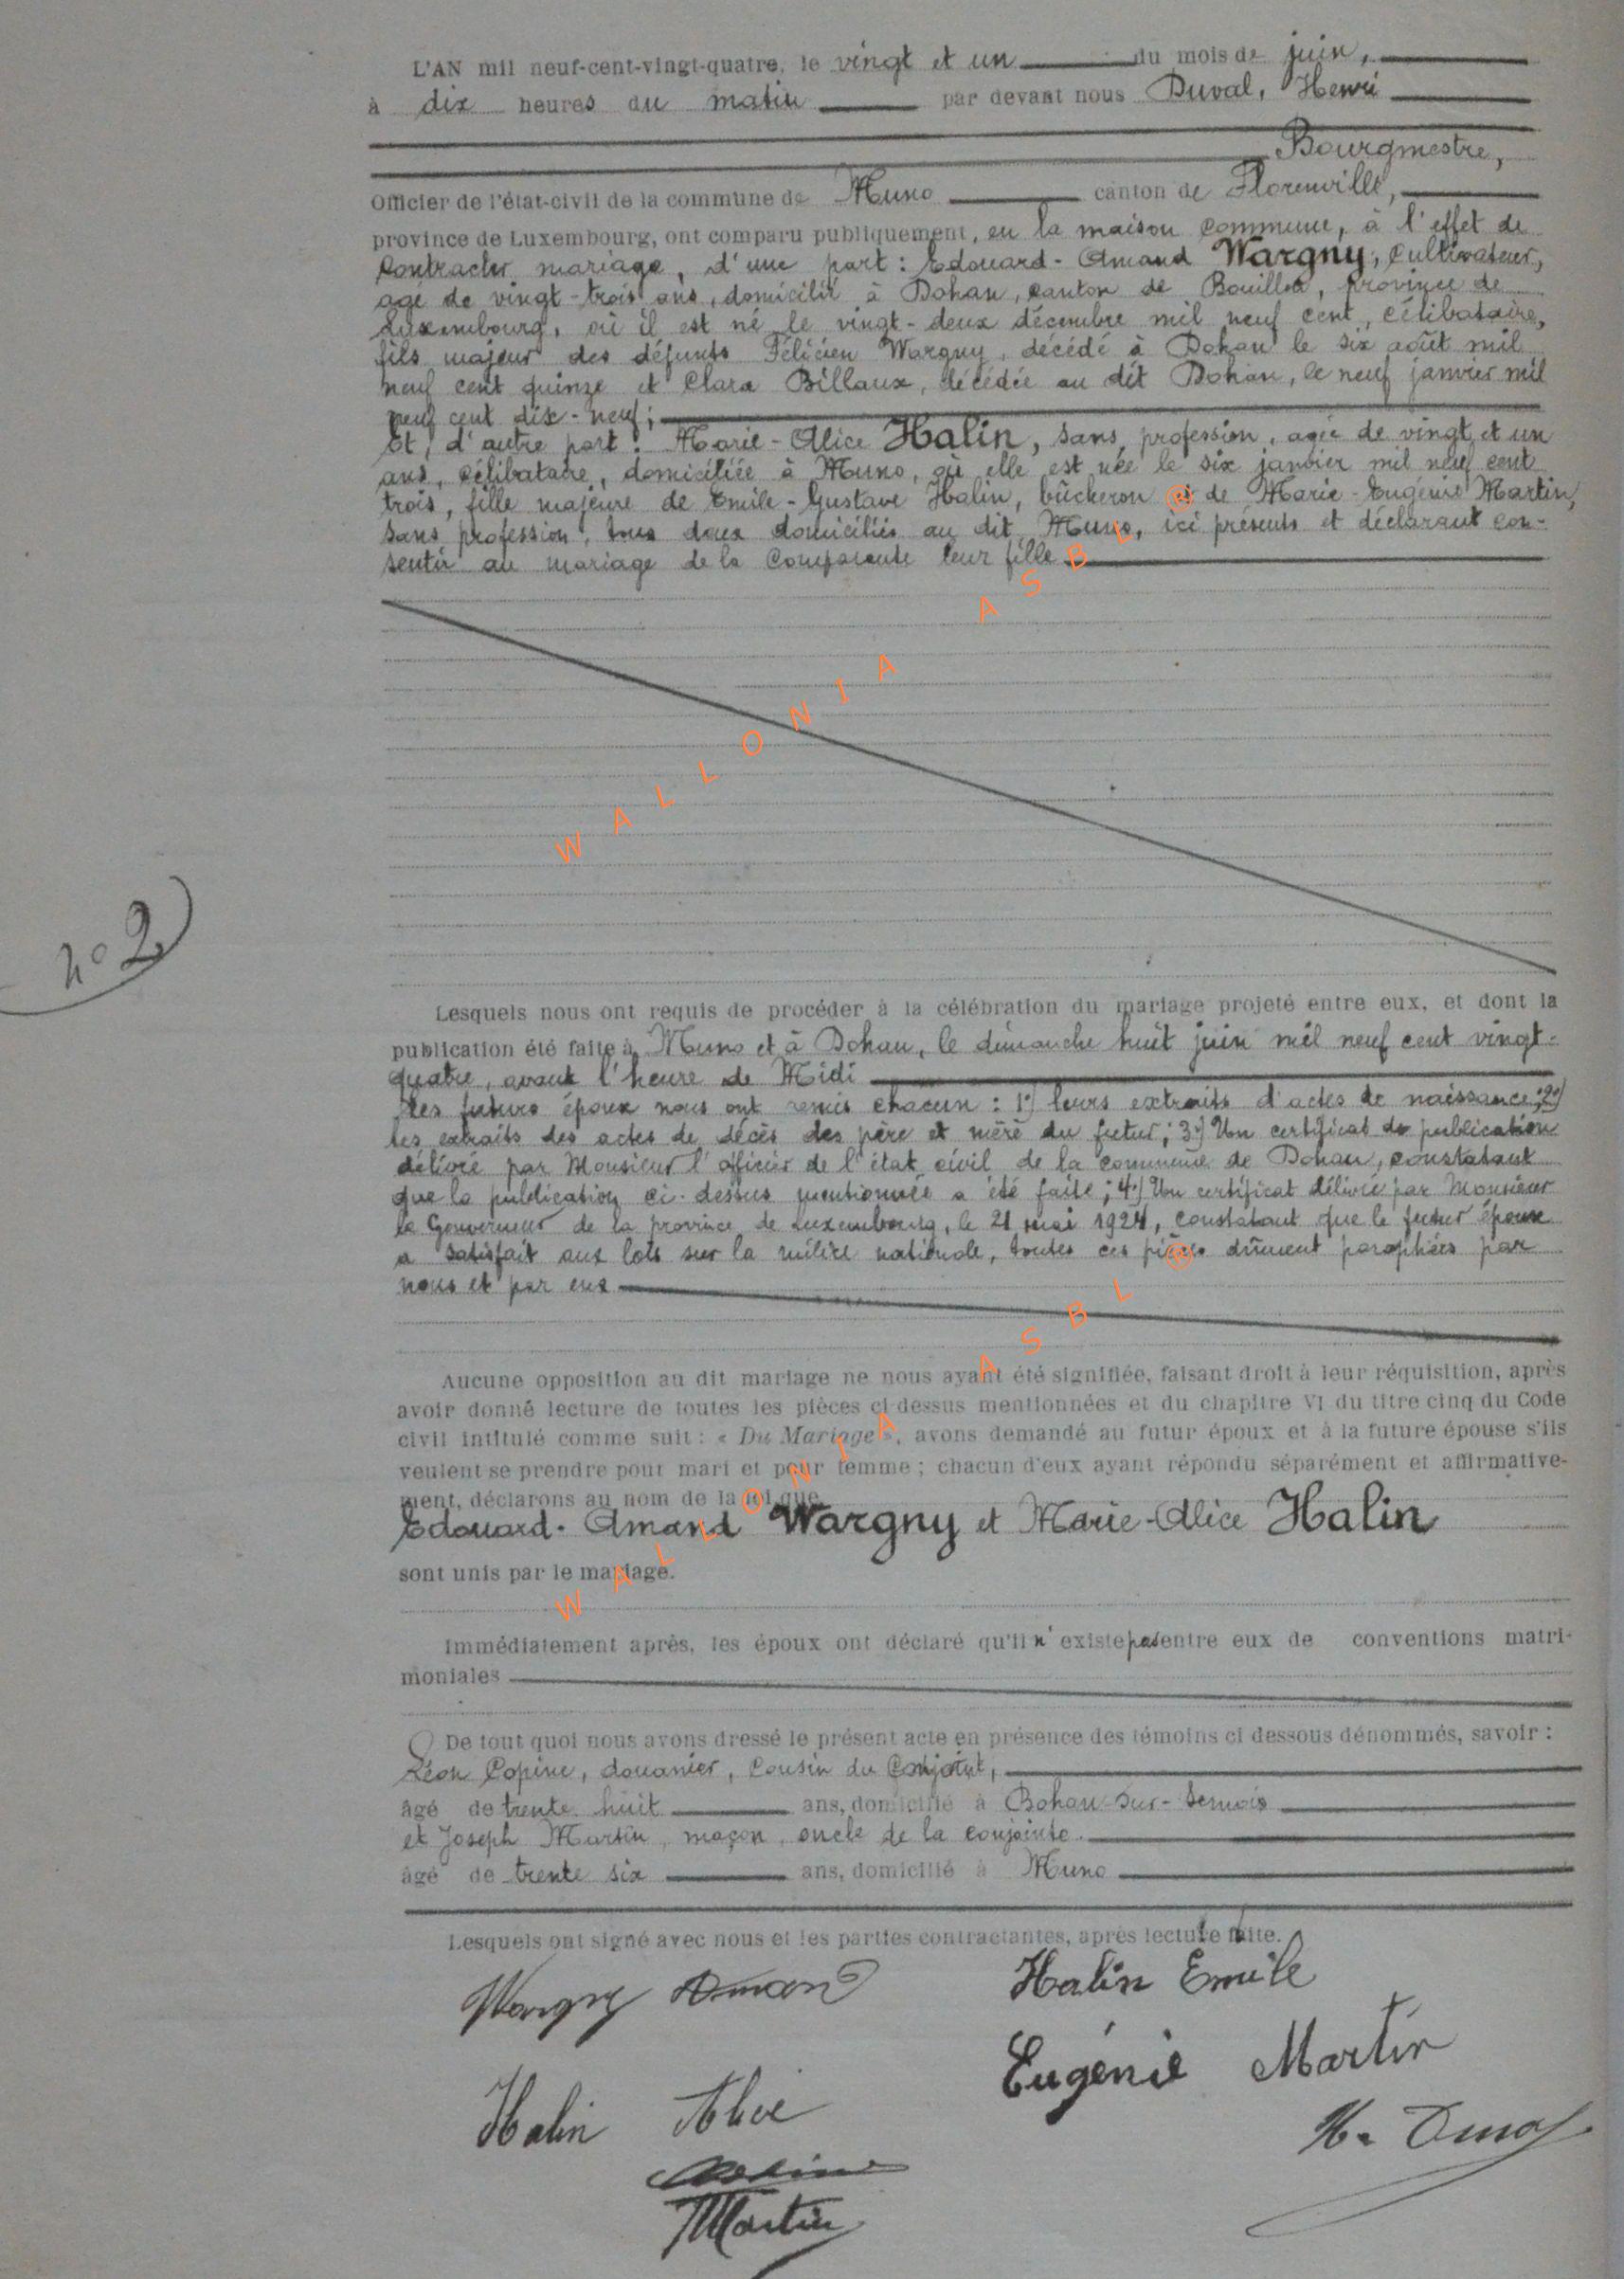 L'AN mil neuf-cent-vingt-quatre, le vingt et un du mois de juin,
à dix heures du matin par devant nous Duval, Henri
Bourgmestre,
Officier de l'état-civil de la commune de Muno canton de Florenville,
province de Luxembourg, ont comparu publiquement, en la maison commune, à l'effet de
contracter mariage, d'une part : Edouard-Amand Wargny, cultivateur,
agé de vingt-trois ans, domicilié à Dohan, canton de Bouillon, province de
Luxembourg, où il est né le vingt-deux décembre mil neuf cent, célibataire,
fils majeur des défunts Félicien Wargny, décédé à Dohan le six août mil
neuf cent quinze et Clara Billaux, décédée au dit Dohan, le neuf janvier mil
neuf cent dix-neuf ;
Et, d'autre part : Marie-Alice Halin, sans profession, agée de vingt et un
ans, célibataire, domiciliée à Muno, où elle est née le six janvier mil neuf cent
trois, fille majeure de Emile-Gustave Halin, bûcheron et de Marie-Eugénie Martin,
sans profession, tous deux domiciliés au dit Muno, ici présents et déclarant con-
sentir au mariage de la comparante leur fille
WALLONIA ASBL ®
n° 2
Lesquels nous ont requis de procéder à la célébration du mariage projeté entre eux, et dont la
publication été faite à Muno et à Dohan, le dimanche huit juin mil neuf cent vingt-
quatre, avant l'heure de Midi
Les futurs époux nous ont remis chacun : 1°) leurs extraits d'actes de naissance ; 2°)
les extraits des actes de décès des père et mère du futur ; 3°) Un certificat de publication
délivré par Monsieur l'officier de l'état civil de la commune de Dohan, constatant
que la publication ci-dessus mentionnée a été faite ; 4°) Un certificat délivré par Monsieur
le Gouverneur de la province de Luxembourg, le 21 mai 1924, constatant que le futur époux
a satisfait aux lois sur la milice nationale, toutes ces pièces dûment paraphées par
nous et par eux
Aucune opposition au dit mariage ne nous ayant été signifiée, faisant droit à leur réquisition, après
avoir donné lecture de toutes les pièces ci-dessus mentionnées et du chapitre VI du titre cinq du Code
civil intitulé comme suit : « Du Mariage », avons demandé au futur époux et à la future épouse s'ils
veulent se prendre pour mari et pour femme ; chacun d'eux ayant répondu séparément et affirmative-
ment, déclarons au nom de la loi que
Edouard-Amand Wargny et Marie-Alice Halin
sont unis par le mariage.
WALLONIA ASBL ®
Immédiatement après, les époux ont déclaré qu'il n'existe pas entre eux de conventions matri-
moniales
De tout quoi nous avons dressé le présent acte en présence des témoins ci dessous dénommés, savoir :
Léon Copine, douanier, cousin du Conjoint,
âgé de trente huit ans, domicilié à Bohan-sur-Semois
et Joseph Martin, maçon, oncle de la conjointe
âgé de trente six ans, domicilié à Muno
Lesquels ont signé avec nous et les parties contractantes, après lecture faite.
Wargny Amand
Halin Emile
Eugénie Martin
Halin Alice
Martin